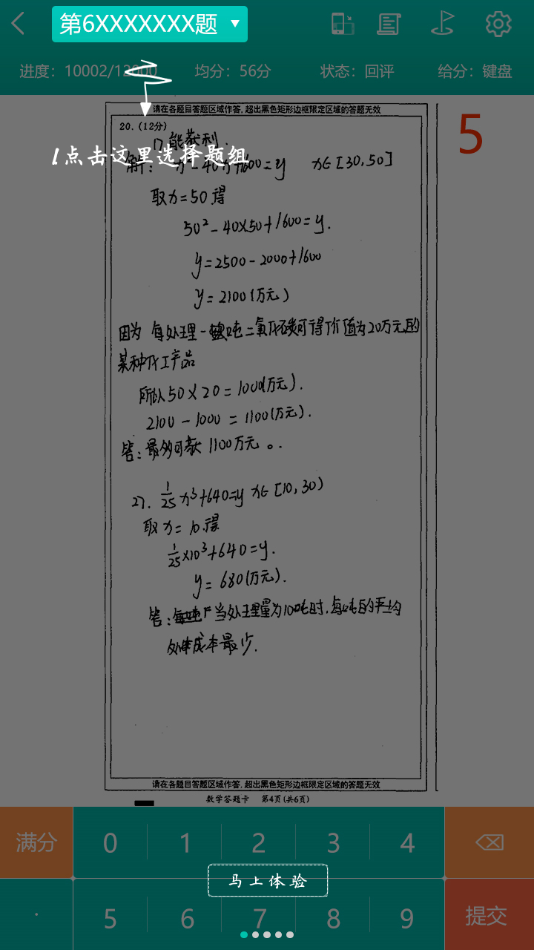 第6XXXXXXX题
进度：10002/12000
均分：56分
状态：回评
给分：键盘
请在各题目答题区域作答，超出黑色矩形边框限定区域的答题无效
5
20.(12分)
1点击这里选择题组
x∈[30,50]
取x=50得
50²-40×50+1600=y.
y=2500-2000+1600
y=2100(万元)
因为 每处理一吨二氧化碳可得价值为20万元的
某种化工产品
所以50×20=1000(万元).
2100-1000=1100(万元).
答:最多可获1100万元。
27. 1/25 x³+640=y x∈[10,30)
取x=10得
1/25×10³+640=y.
y=680(万元).
答: 当处理量为10吨时,每吨的平均
处理成本最少.
请在各题目答题区域作答，超出黑色矩形边框限定区域的答题无效
数学答题卡 第4页(共6页)
满分 0 1 2 3 4
马上体验
· 5 6 7 8 9 提交